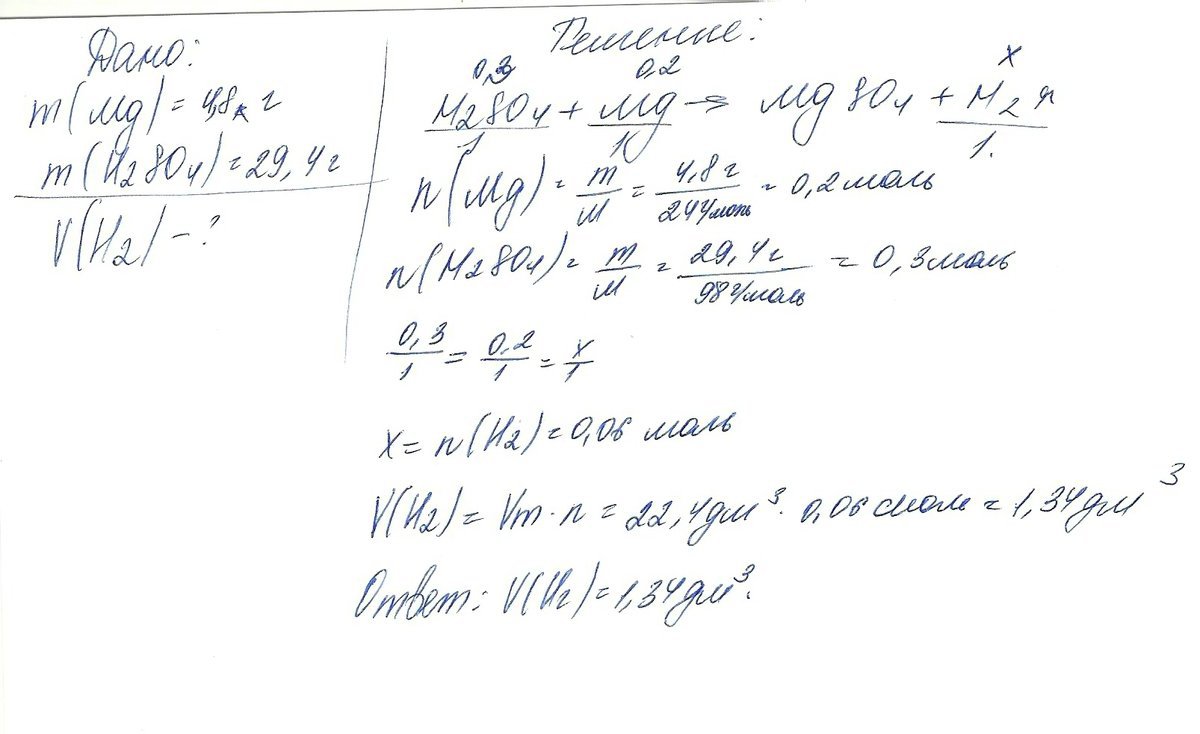 Дано:
m(Mg) = 4,8 г
m(H2SO4) = 29,4 г
V(H2) - ?
Решение:
0,3 0,2 x
H2SO4 + Mg → MgSO4 + H2↑
1 1 1.
n(Mg) = m/M = 4,8 г/24 г/моль = 0,2 моль
n(H2SO4) = m/M = 29,4 г/98 г/моль = 0,3 моль
0,3/1 = 0,2/1 = x/1
x = n(H2) = 0,06 моль
V(H2) = Vm · n = 22,4 дм³ · 0,06 моль = 1,34 дм³
Ответ: V(H2) = 1,34 дм³.